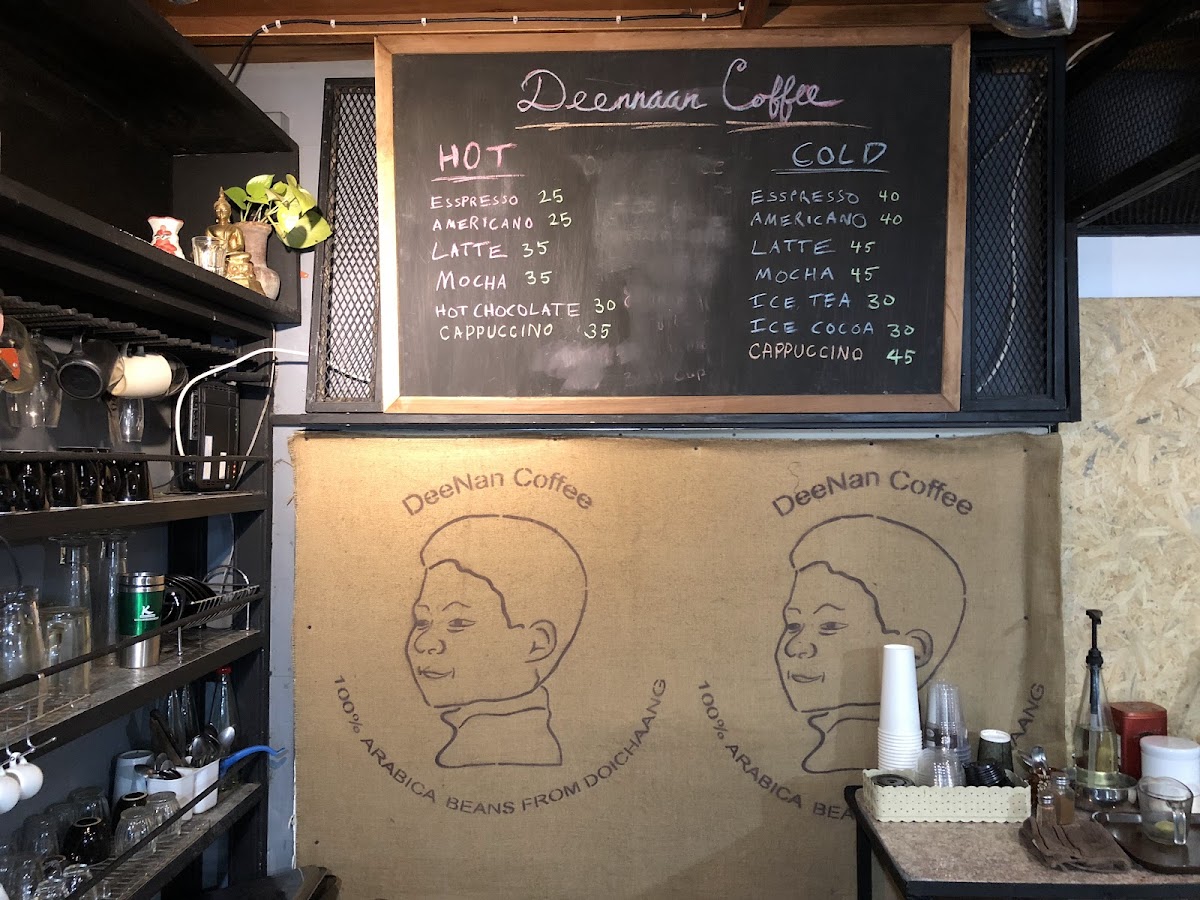 Deennaan Coffee
HOT
ESSPRESSO 25
AMERICANO 25
LATTE 35
MOCHA 35
HOT CHOCOLATE 30
CAPPUCCINO 35
COLD
ESSPRESSO 40
AMERICANO 40
LATTE 45
MOCHA 45
ICE TEA 30
ICE COCOA 30
CAPPUCCINO 45
DeeNan Coffee
100% ARABICA BEANS FROM DOICHAANG
DeeNan Coffee
100% ARABICA